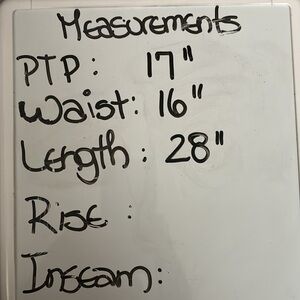 Measurements
PTP: 17"
Waist: 16"
Length: 28"
Rise:
Inseam: